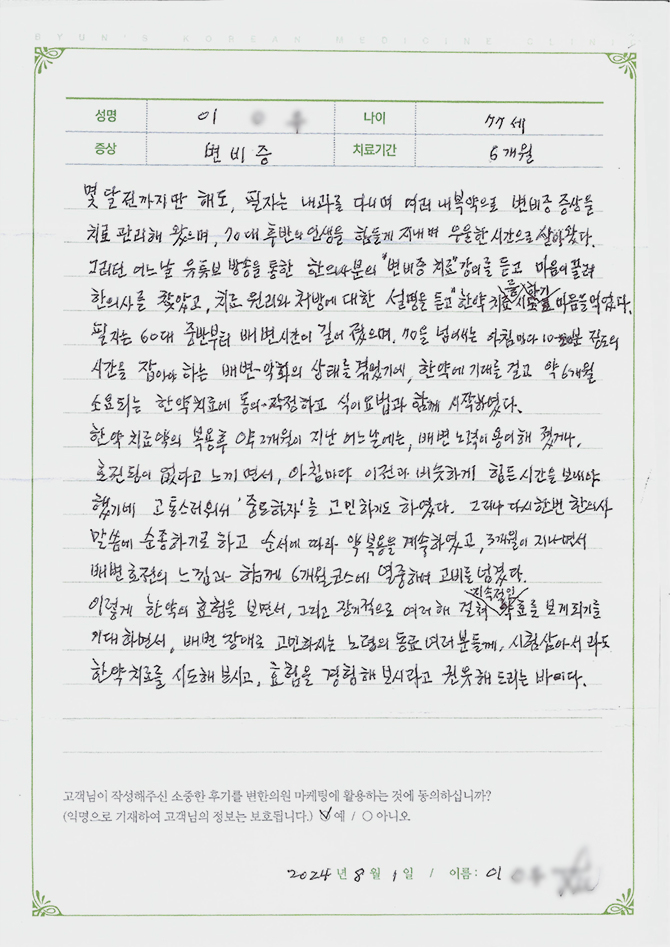 BYUN'S KOREAN MEDICINE CLINIC
성명 이 나이 77세
증상 변비증 치료기간 6개월
몇 달 전까지만 해도, 필자는 내과를 다니며 여러 내복약으로 변비증 증상을
치료 관리해 왔으며, 70대 후반의 인생을 힘들게 지내며 우울한 시간으로 살아왔다.
그러던 어느날 유튜브 방송을 통한 한의사분의 "변비증 치료" 강의를 듣고 마음이 끌려
한의사를 찾았고, 치료 원리와 처방에 대한 설명을 듣고 한약 치료를 하기 마음을 먹었다.
필자는 60대 중반부터 배변시간이 길어 졌으며, 70을 넘어서는 아침마다 10분 정도의
시간을 잡아야 하는 배변-악화의 상태를 겪었기에, 한약에 기대를 걸고 약 6개월
소요되는 한약치료에 동의·작정하고 식이요법과 함께 시작하였다.
한약 치료약의 복용후 약 2개월이 지난 어느날에는, 배변 노력이 용이해 졌거나,
호전됨이 없다고 느끼면서, 아침마다 이전과 비슷하게 힘든 시간을 보내야
했기에 고통스러워서 '중도하차'를 고민하기도 하였다. 그러나 다시한번 한의사
말씀에 순종하기로 하고 순서에 따라 약 복용을 계속하였고, 3개월이 지나면서
배변 호전의 느낌과 함께 6개월 코스에 열중하여 고비를 넘겼다.
이렇게 한약의 효험을 보면서, 그리고 장기적으로 여러해 걸쳐 지속적인 효를 보게 되기를
기대하면서, 배변 장애로 고민하시는 노령의 동료 여러분들께, 시험삼아서 라도
한약 치료를 시도해 보시고, 효험을 경험해 보시라고 권유해 드리는 바이다.
고객님이 작성해주신 소중한 후기를 변한의원 마케팅에 활용하는 것에 동의하십니까?
(익명으로 기재하여 고객님의 정보는 보호됩니다.) ✓예 / ○ 아니오
2024 년 8 월 1 일 / 이름 : 이